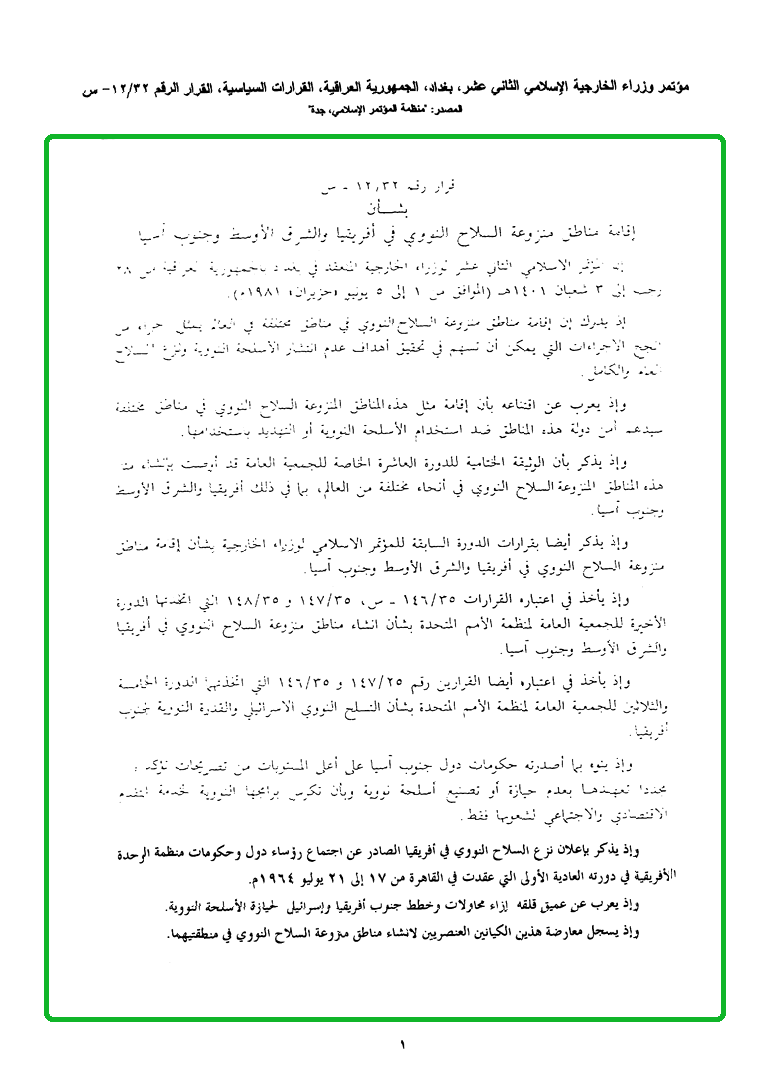 مؤتمر وزراء الخارجية الإسلامي الثاني عشر، بغداد، الجمهورية العراقية، القرارات السياسية، القرار الرقم ١٢/٣٢- س
المصدر: "منظمة المؤتمر الإسلامي، جدة"
قرار رقم ١٢/٣٢ - س
بشـــأن
إقامة مناطق منزوعة السلاح النووي في أفريقيا والشرق الأوسط وجنوب آسيا
إن المؤتمر الاسلامي الثاني عشر لوزراء الخارجية المنعقد في بغداد بالجمهورية العراقية من ٢٨
رجب إلى ٣ شعبان ١٤٠١هـ (الموافق من ١ إلى ٥ يونيو «حزيران» ١٩٨١م).
إذ يدرك إن إقامة مناطق منزوعة السلاح النووي في مناطق مختلفة في العالم يمثل اجراء من
انجح الاجراءات التي يمكن أن تسهم في تحقيق أهداف عدم انتشار الأسلحة النووية ونزع السلاح
العام والكامل.
وإذ يعرب عن اقتناعه بأن إقامة مثل هذه المناطق المنزوعة السلاح النووي في مناطق مختلفة
سيدعم أمن دولة هذه المناطق ضد استخدام الأسلحة النووية أو التهديد باستخدامها.
وإذ يذكر بأن الوثيقة الختامية للدورة العاشرة الخاصة للجمعية العامة قد أوصت بإنشاء مثل
هذه المناطق المنزوعة السلاح النووي في أنحاء مختلفة من العالم، بما في ذلك أفريقيا والشرق الأوسط
وجنوب آسيا.
وإذ يذكر أيضا بقرارات الدورة السابقة للمؤتمر الاسلامي لوزراء الخارجية بشأن إقامة مناطق
منزوعة السلاح النووي في أفريقيا والشرق الأوسط وجنوب آسيا.
وإذ يأخذ في اعتباره القرارات ١٤٦/٣٥ - س، ١٤٧/٣٥ و ١٤٨/٣٥ التي اتخذتها الدورة
الأخيرة للجمعية العامة لمنظمة الأمم المتحدة بشأن انشاء مناطق منزوعة السلاح النووي في أفريقيا
والشرق الأوسط وجنوب آسيا.
وإذ يأخذ في اعتباره أيضا القرارين رقم ١٤٧/٢٥ و ١٤٦/٣٥ التي اتخذتها الدورة الخامسة
والثلاثين للجمعية العامة لمنظمة الأمم المتحدة بشأن التسلح النووي الاسرائيلي والقدرة النووية لجنوب
أفريقيا.
وإذ ينوه بما أصدرته حكومات دول جنوب آسيا على أعلى المستويات من تصريحات تؤكد
مجددا تعهدها بعدم حيازة أو تصنيع أسلحة نووية وبأن تكرس برامجها النووية لخدمة التقدم
الاقتصادي والاجتماعي لشعوبها فقط.
وإذ يذكر بإعلان نزع السلاح النووي في أفريقيا الصادر عن اجتماع رؤساء دول وحكومات منظمة الوحدة
الأفريقية في دورته العادية الأولى التي عقدت في القاهرة من ١٧ إلى ٢١ يوليو ١٩٦٤م.
وإذ يعرب عن عميق قلقه إزاء محاولات وخطط جنوب أفريقيا وإسرائيل لحيازة الأسلحة النووية.
وإذ يسجل معارضة هذين الكيانين العنصريين لانشاء مناطق منزوعة السلاح النووي في منطقتيهما.
١